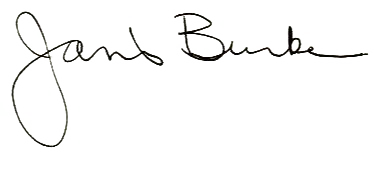 Janis Burke